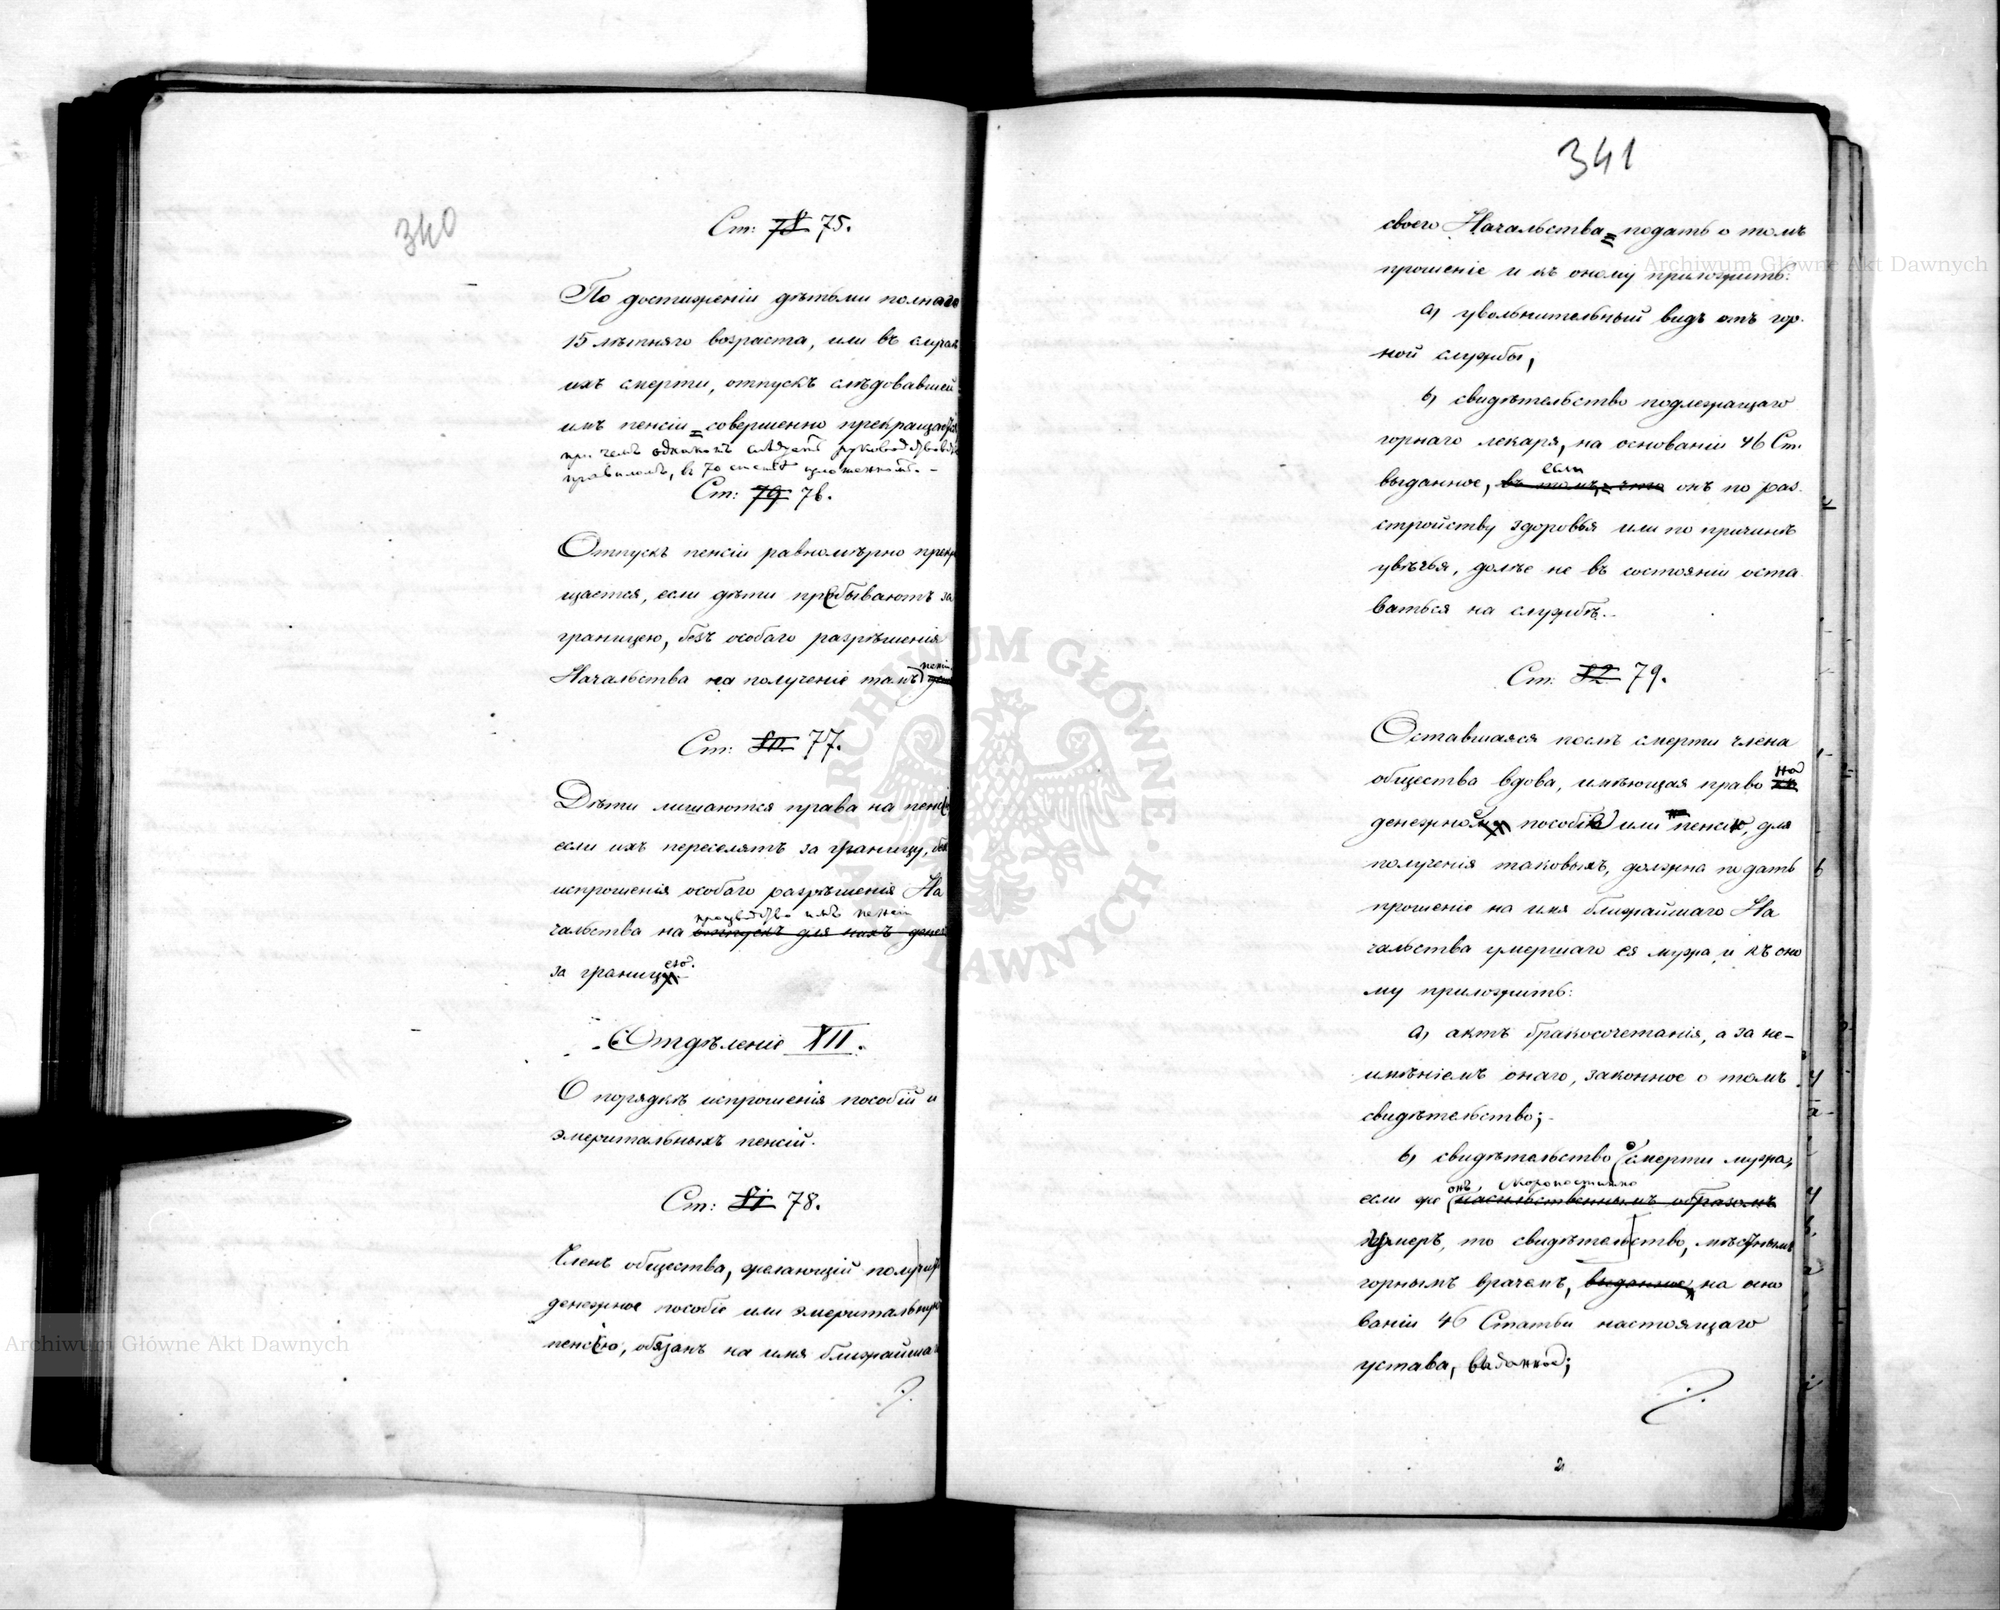 340
Ст: 78 75.
По достиженіи дѣтьми полнаго
15 лѣтняго возраста, или въ случаѣ
ихъ смерти, отпускъ слѣдовавшей
имъ пенсіи = совершенно прекращается
при чемъ однакожъ слѣдуетъ руководствоваться
правиломъ, въ 70 статьѣ изложеннымъ. -
Ст: 79 76.
Отпускъ пенсіи равномѣрно прекра
щается, если дѣти пребываютъ за
границею, безъ особаго разрѣшенія
Начальства на получение тамъ пенсіи
Ст: 80 77.
Дѣти лишаются права на пенсію
если ихъ переселятъ за границу, безъ
испрошенія особаго разрѣшенія На
производство имъ пенсіи
чальства на отпускъ для нихъ денегъ
за границею.
Отдѣленіе XII.
О порядкѣ испрошенія пособій и
эмеритальныхъ пенсій.
Ст: 81 78.
Членъ общества, желающій получить
денежное пособіе или эмеритальную
пенсію, обязанъ на имя ближайша
341
своего Начальства = подать о томъ
прошеніе и къ оному приложить:
а) увольнительный видъ отъ гор-
ной службы,
b) свидѣтельство подлежащаго
горнаго лекаря, на основаніи 46 Ст.
если
выданное, въ томъ, что онъ по раз-
стройству здоровья или по причинѣ
увѣчья, долѣе не въ состояніи оста
ваться на службѣ.
Ст: 82 79.
Оставшаяся послѣ смерти члена
общества вдова, имѣющая право на
денежное пособіе или пенсію, для
полученія таковыхъ, должна подать
прошеніе на имя ближайшаго На
чальства умершаго ея мужа и къ оно
му приложить:
а) актъ бракосочетанія, а за не-
имѣніемъ онаго, законное о томъ
свидѣтельство; -
b) свидѣтельство о смерти мужа,
онъ скоропостижно
если же насильственнымъ образомъ
умеръ, то свидѣтельство, мѣстнымъ
горнымъ врачемъ, выданное, на осно
ваніи 46 Статьи настоящаго
устава, выданное;
2
Archiwum Główne Akt Dawnych
Archiwum Główne Akt Dawnych
ARCHIWUM GŁÓWNE AKT DAWNYCH